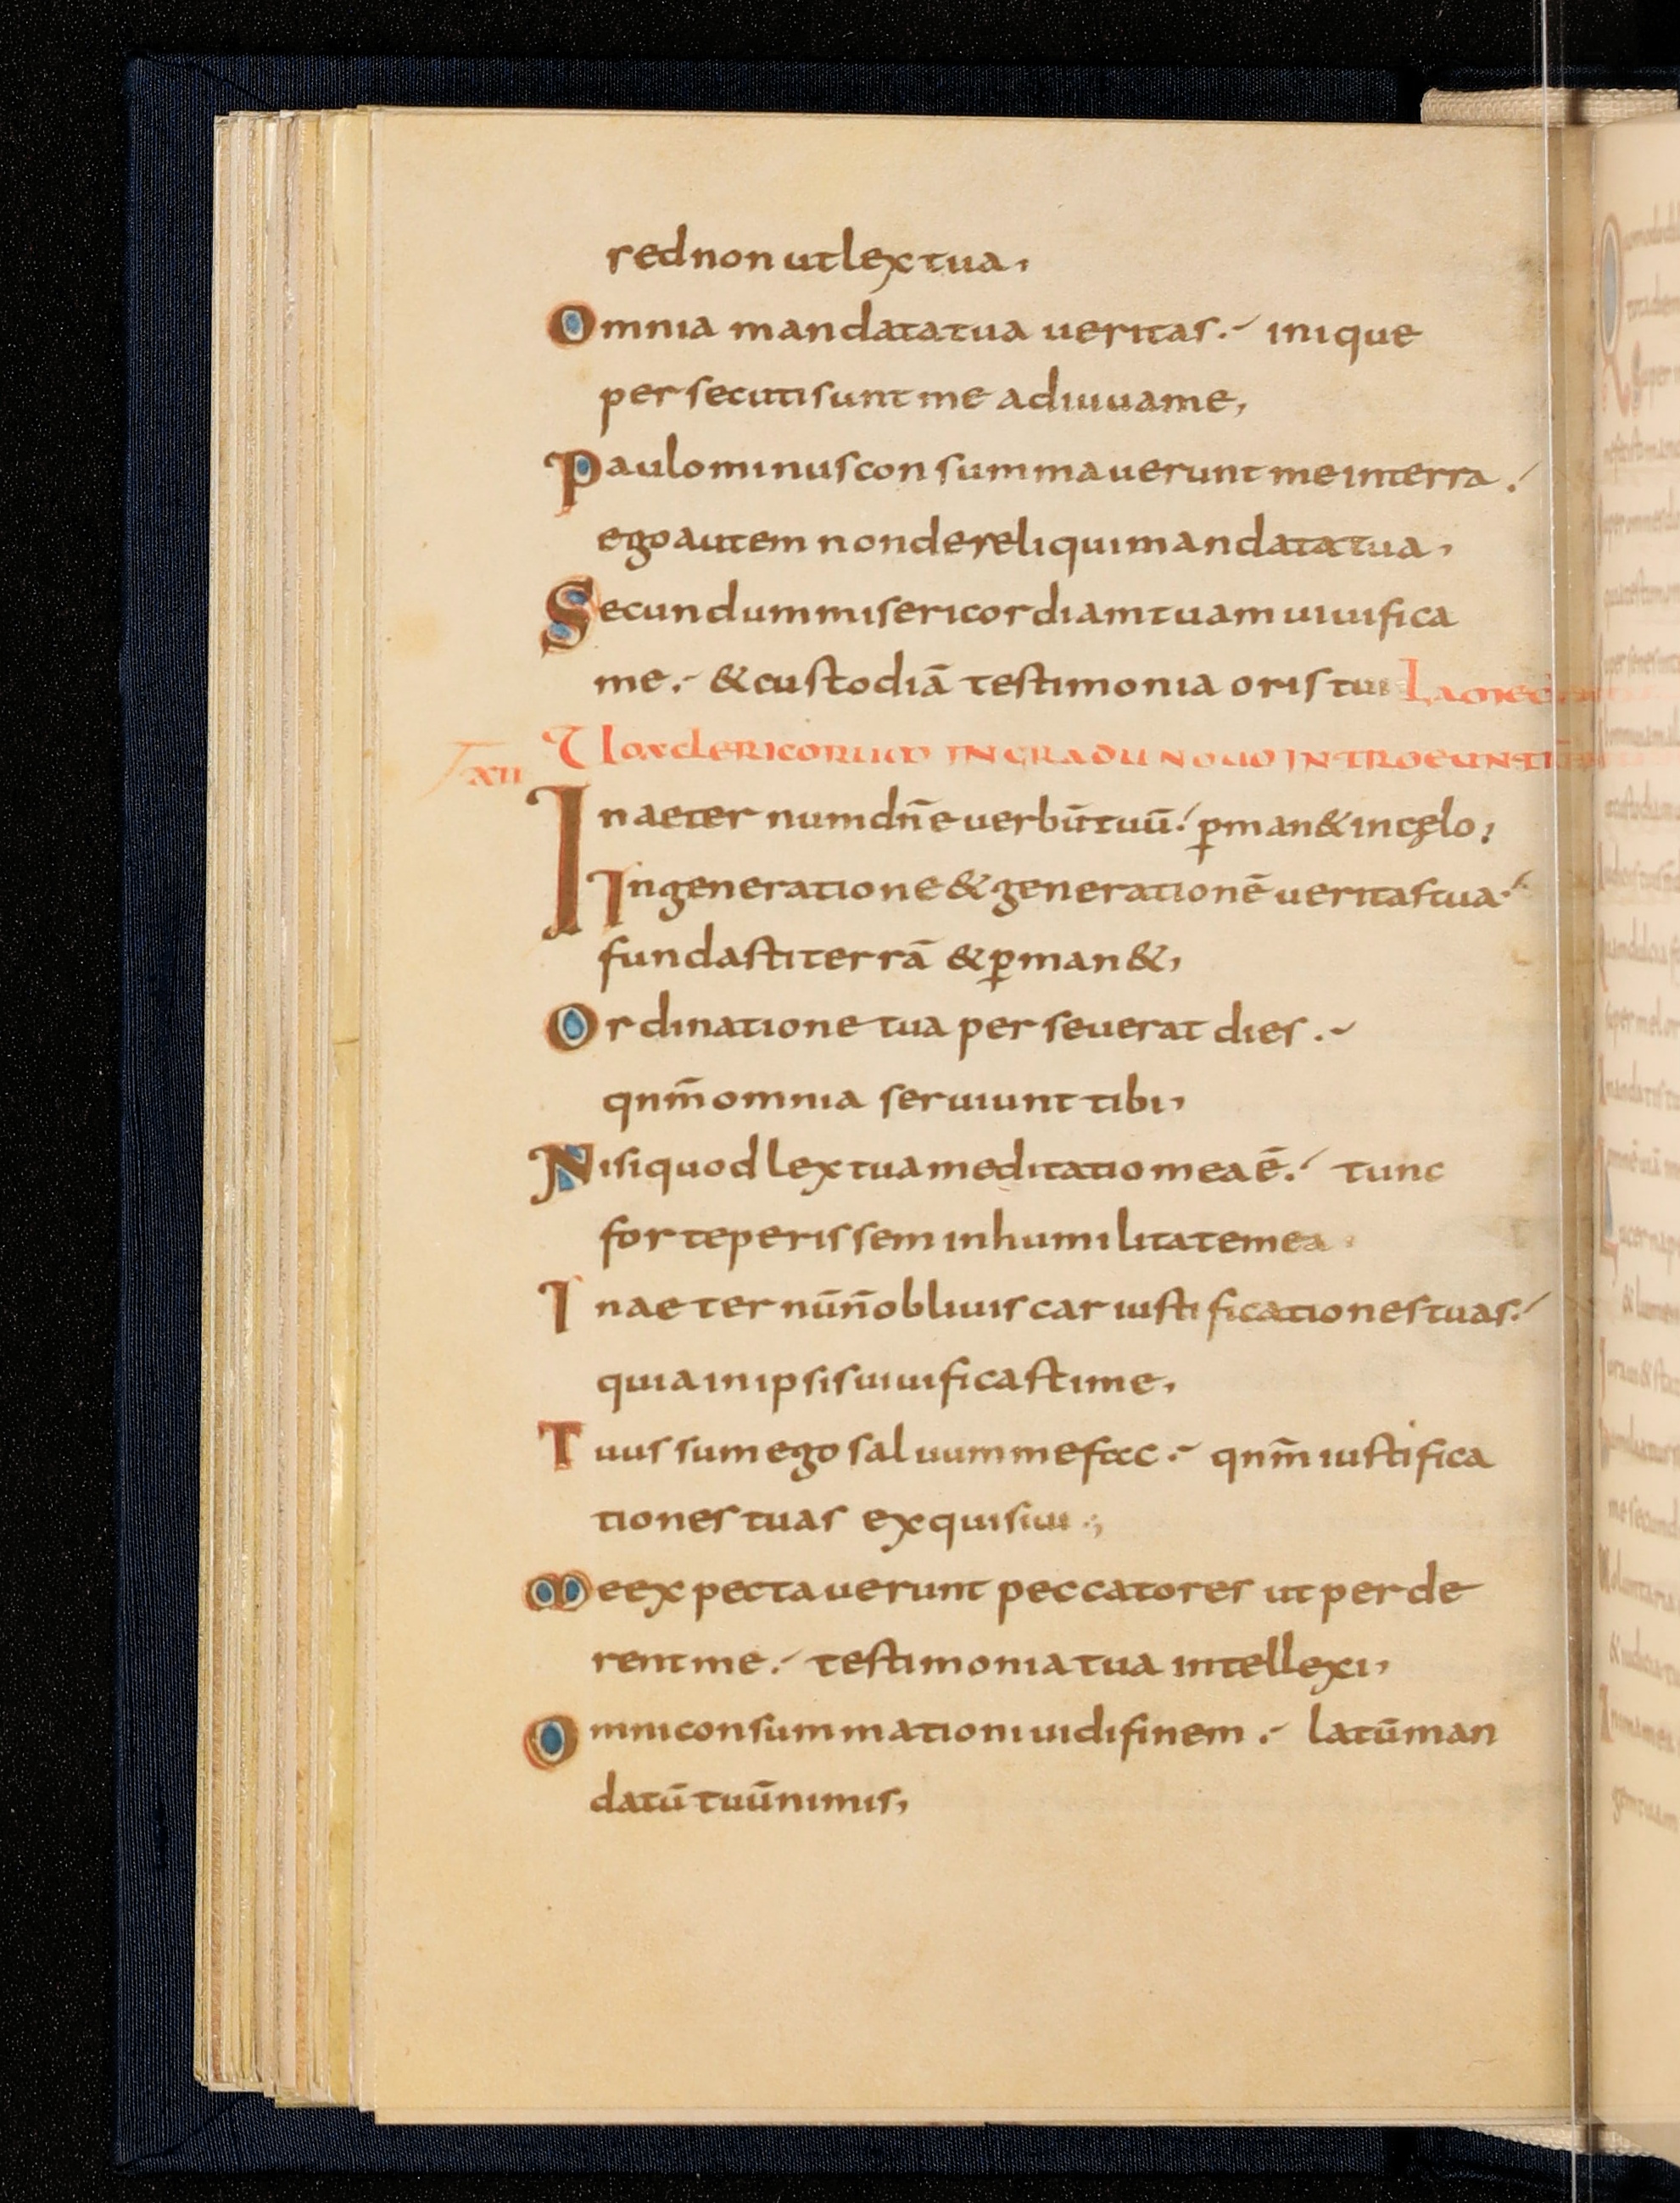 sed non ut lex tua,
Omnia mandata tua ueritas.- inique
persecuti sunt me adiuua me,
Paulominus consummauerunt me in terra ./
ego autem non dereliqui mandata tua,
Secundum misericordiam tuam uiuifica
me.- & custodiā testimonia oris tui Lamed
xii Uox clericorum in gradu nouo introeuntiū
In aeternum dn̄e uerbū tuū./ ꝑman& in cęlo;
In generatione & generationē ueritas tua./
fundasti terrā & ꝑman&,
Ordinatione tua perseuerat dies .-
qnm̄ omnia seruiunt tibi,
Nisi quod lex tua meditatio mea ē./ tunc
forte perissem in humilitate mea
In aeternū n̄ obliuiscar iustificationes tuas./
quia in ipsis uiuificasti me,
Tuus sum ego saluum me fac.- qnm̄ iustifica
tiones tuas exquisiui .,
Me expectauerunt peccatores ut perde
rent me.- testimonia tua intellexi,
Omni consummationi uidi finem .- latū man
datū tuū nimis,